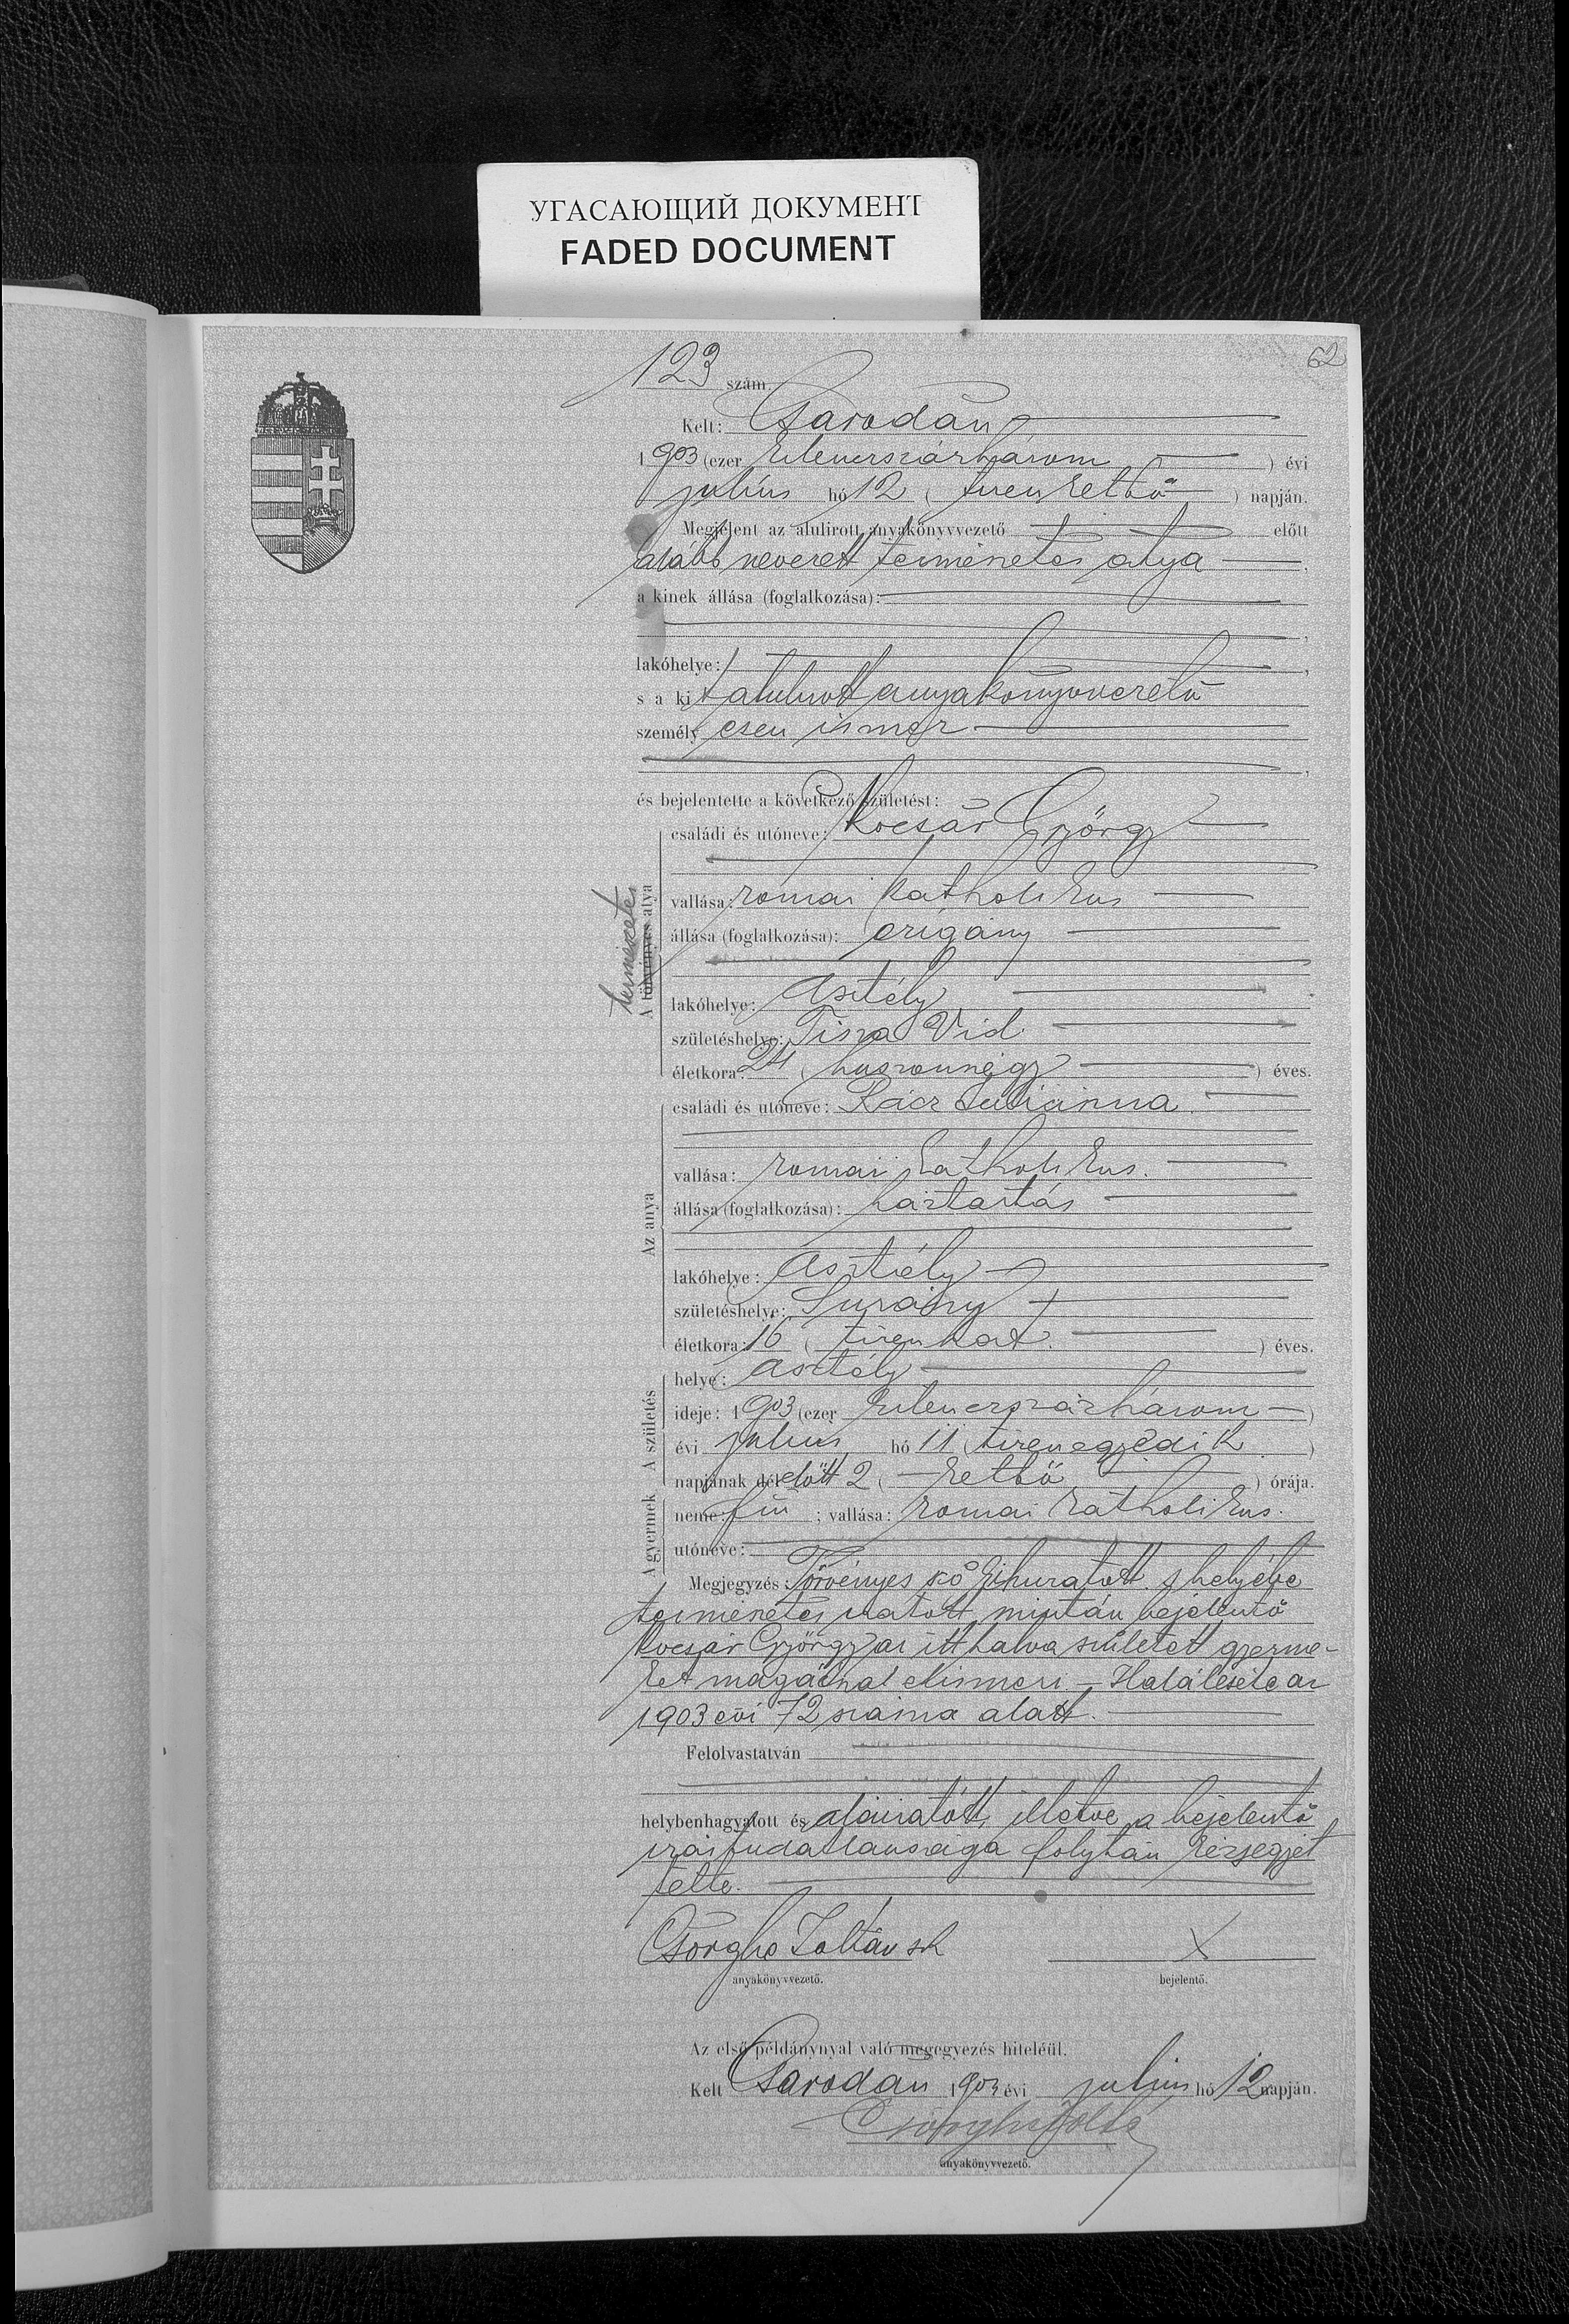 УГАСАЮЩИЙ ДОКУМЕНТ
FADED DOCUMENT
62
123 szám.
Kelt: Csarodán
1903 (ezer kilencszázhárom) évi
julius hó 12 (tizenkettő) napján.
Megjelent az alulirott anyakönyvvezető előtt
alább nevezett természetes atya,
a kinek állása (foglalkozása):
lakóhelye:
s a kit alulirott anyakönyvvezető
személyesen ismer
és bejelentette a következő születést:
természetes
A törvényes atya
családi és utóneve: Kocsár György
vallása: romai katholikus
állása (foglalkozása): czigány
lakóhelye: Asztély
születéshelye: Tisza Vid
életkora: 24 (huszonnégy) éves.
Az anya
családi és utóneve: Rácz Julianna.
vallása: romai katholikus.
állása (foglalkozása): háztartás
lakóhelye: Asztély
születéshelye: Surány
életkora: 16 (tizenhat.) éves.
A születés
helye: Asztély
ideje: 1903 (ezer kilenczszázhárom)
évi julius hó 11 (tizenegyedik)
napjának délelőtt 2 (kettő) órája.
A gyermek
neme: fiú; vallása: romai katholikus.
utóneve:
Megjegyzés: Törvényes szó kihuzatott s helyébe
természetes iratott miután bejelentő
Kocsár György az itt halva született gyerme-
ket magáénak elismeri. – Halálesete az
1903 évi 72 száma alatt.
Felolvastatván
helybenhagyatott és aláiratott, illetve a bejelentő
irástudatlansága folytán kézjegyét
tette.
Csorgho Zoltán sk X
anyakönyvvezető. bejelentő.
Az első példánynyal való megegyezés hiteléül.
Kelt Csarodán 1903 évi julius hó 12 napján.
anyakönyvvezető.